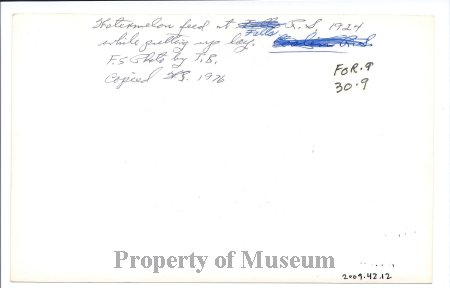 Watermelon feed at Fells R.S 1924
while putting up hay.
F.S Photo by T.B.
Copied 1976
FOR.9
30.9
Property of Museum
2009.42.12